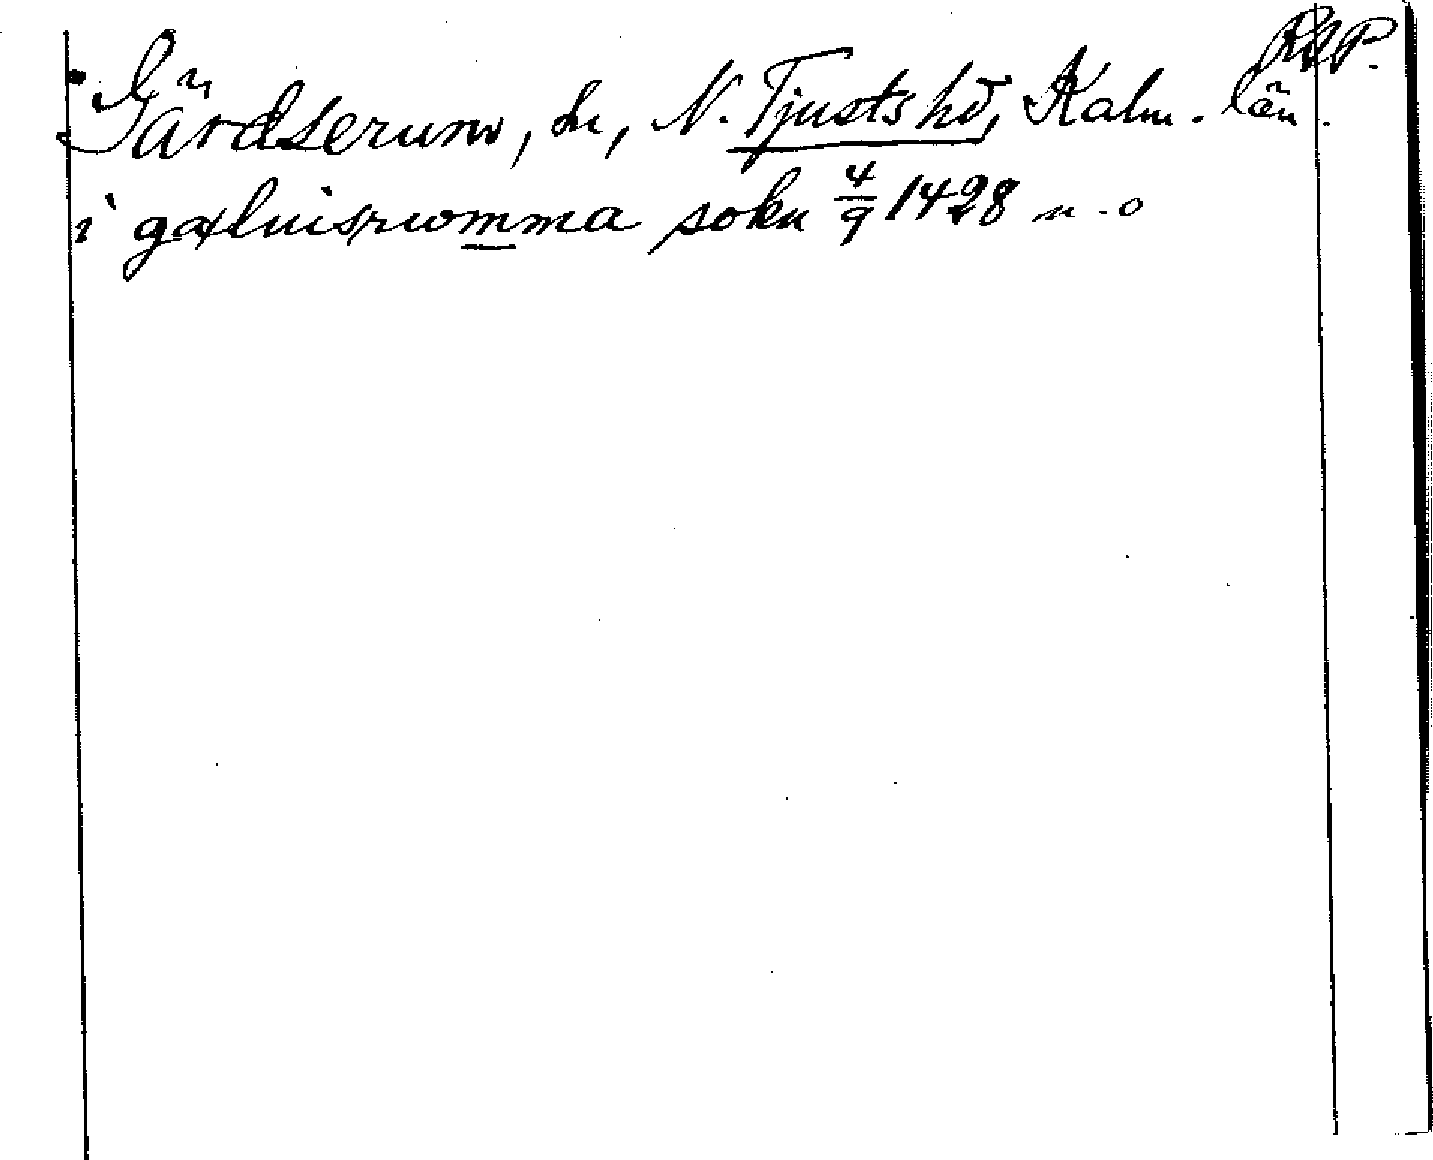 RAP.
Gärdserum, sn, N. Tjusts hd, Kalm. län.
i gatluisrumma sokn 4/9 1428 n-o